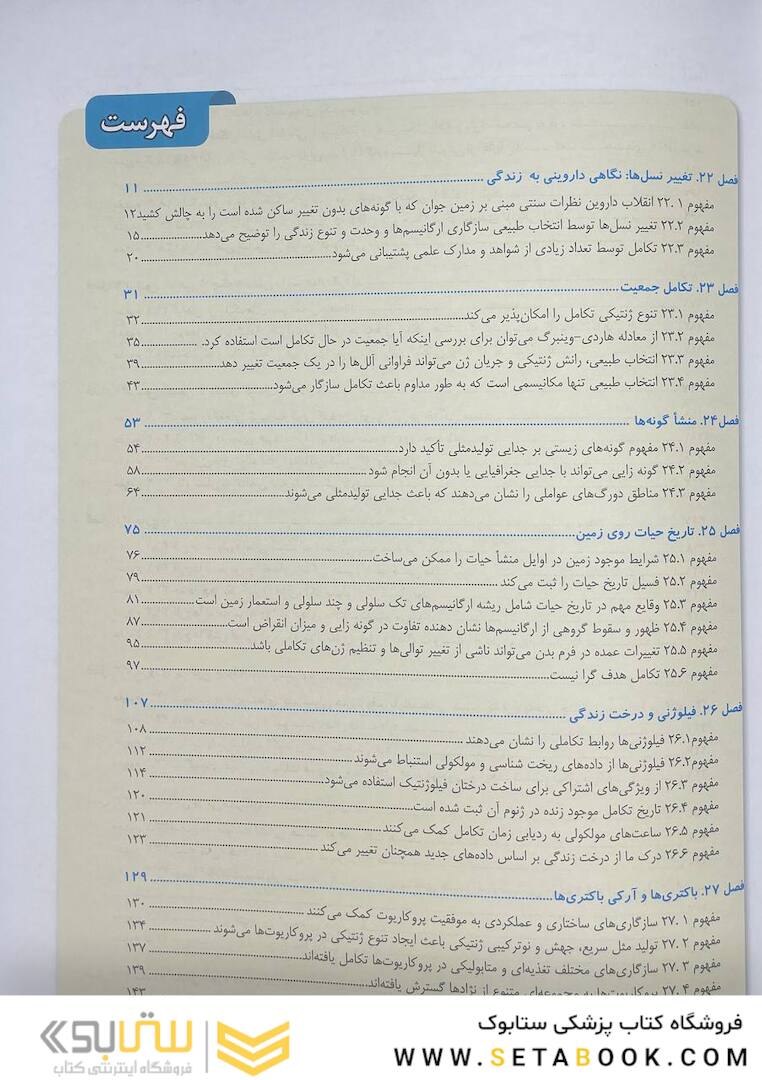 فهرست
فصل ۲۲. تغییر نسل‌ها: نگاهی داروینی به زندگی ........ ۱۱
مفهوم ۲۲.۱ انقلاب داروین نظرات سنتی مبنی بر زمین جوان که با گونه‌های بدون تغییر ساکن شده است را به چالش کشید ۱۲
مفهوم ۲۲.۲ تغییر نسل‌ها توسط انتخاب طبیعی سازگاری ارگانیسم‌ها و وحدت و تنوع زندگی را توضیح می‌دهد........ ۱۵
مفهوم ۲۲.۳ تکامل توسط تعداد زیادی از شواهد و مدارک علمی پشتیبانی می‌شود........ ۲۰
فصل ۲۳. تکامل جمعیت........ ۳۱
مفهوم ۲۳.۱ تنوع ژنتیکی تکامل را امکان‌پذیر می‌کند........ ۳۲
مفهوم ۲۳.۲ از معادله هاردی-وینبرگ می‌توان برای بررسی اینکه آیا جمعیت در حال تکامل است استفاده کرد. ........ ۳۵
مفهوم ۲۳.۳ انتخاب طبیعی، رانش ژنتیکی و جریان ژن می‌تواند فراوانی آلل‌ها را در یک جمعیت تغییر دهد........ ۳۹
مفهوم ۲۳.۴ انتخاب طبیعی تنها مکانیسمی است که به طور مداوم باعث تکامل سازگار می‌شود........ ۴۳
فصل ۲۴. منشأ گونه‌ها ........ ۵۳
مفهوم ۲۴.۱ مفهوم گونه‌های زیستی بر جدایی تولیدمثلی تأکید دارد........ ۵۴
مفهوم ۲۴.۲ گونه زایی می‌تواند با جدایی جغرافیایی یا بدون آن انجام شود ........ ۵۸
مفهوم ۲۴.۳ مناطق دورگ‌های عواملی را نشان می‌دهند که باعث جدایی تولیدمثلی می‌شوند........ ۶۴
فصل ۲۵. تاریخ حیات روی زمین........ ۷۵
مفهوم ۲۵.۱ شرایط موجود زمین در اوایل منشأ حیات را ممکن می‌ساخت........ ۷۶
مفهوم ۲۵.۲ فسیل تاریخ حیات را ثبت می‌کند ........ ۷۹
مفهوم ۲۵.۳ وقایع مهم در تاریخ حیات شامل ریشه ارگانیسم‌های تک سلولی و چند سلولی و استعمار زمین است........ ۸۱
مفهوم ۲۵.۴ ظهور و سقوط گروهی از ارگانیسم‌ها نشان دهنده تفاوت در گونه زایی و میزان انقراض است........ ۸۷
مفهوم ۲۵.۵ تغییرات عمده در فرم بدن می‌تواند ناشی از تغییر توالی‌ها و تنظیم ژن‌های تکاملی باشد........ ۹۵
مفهوم ۲۵.۶ تکامل هدف گرا نیست........ ۹۷
فصل ۲۶. فیلوژنی و درخت زندگی ........ ۱۰۷
مفهوم ۲۶.۱ فیلوژنی‌ها روابط تکاملی را نشان می‌دهند ........ ۱۰۸
مفهوم ۲۶.۲ فیلوژنی‌ها از داده‌های ریخت شناسی و مولکولی استنباط می‌شوند ........ ۱۱۲
مفهوم ۲۶.۳ از ویژگی‌های اشتراکی برای ساخت درختان فیلوژنتیک استفاده می‌شود........ ۱۱۴
مفهوم ۲۶.۴ تاریخ تکامل موجود زنده در ژنوم آن ثبت شده است........ ۱۲۰
مفهوم ۲۶.۵ ساعت‌های مولکولی به ردیابی زمان تکامل کمک می‌کنند ........ ۱۲۱
مفهوم ۲۶.۶ درک ما از درخت زندگی بر اساس داده‌های جدید همچنان تغییر می‌کند ........ ۱۲۳
فصل ۲۷. باکتری‌ها و آرکی باکتری‌ها........ ۱۲۹
مفهوم ۲۷.۱ سازگاری‌های ساختاری و عملکردی به موفقیت پروکاریوت کمک می‌کنند ........ ۱۳۰
مفهوم ۲۷.۲ تولید مثل سریع، جهش و نوترکیبی ژنتیکی باعث ایجاد تنوع ژنتیکی در پروکاریوت‌ها می‌شوند ........ ۱۳۴
مفهوم ۲۷.۳ سازگاری‌های مختلف تغذیه‌ای و متابولیکی در پروکاریوت‌ها تکامل یافته‌اند........ ۱۳۷
مفهوم ۲۷.۴ پروکاریوت‌ها به مجموعه‌ای متنوع از نژادها گسترش یافته‌اند........ ۱۳۹
۱۴۳
فروشگاه کتاب پزشکی ستابوک
WWW.SETABOOK.COM
ستابوک
فروشگاه اینترنتی کتاب